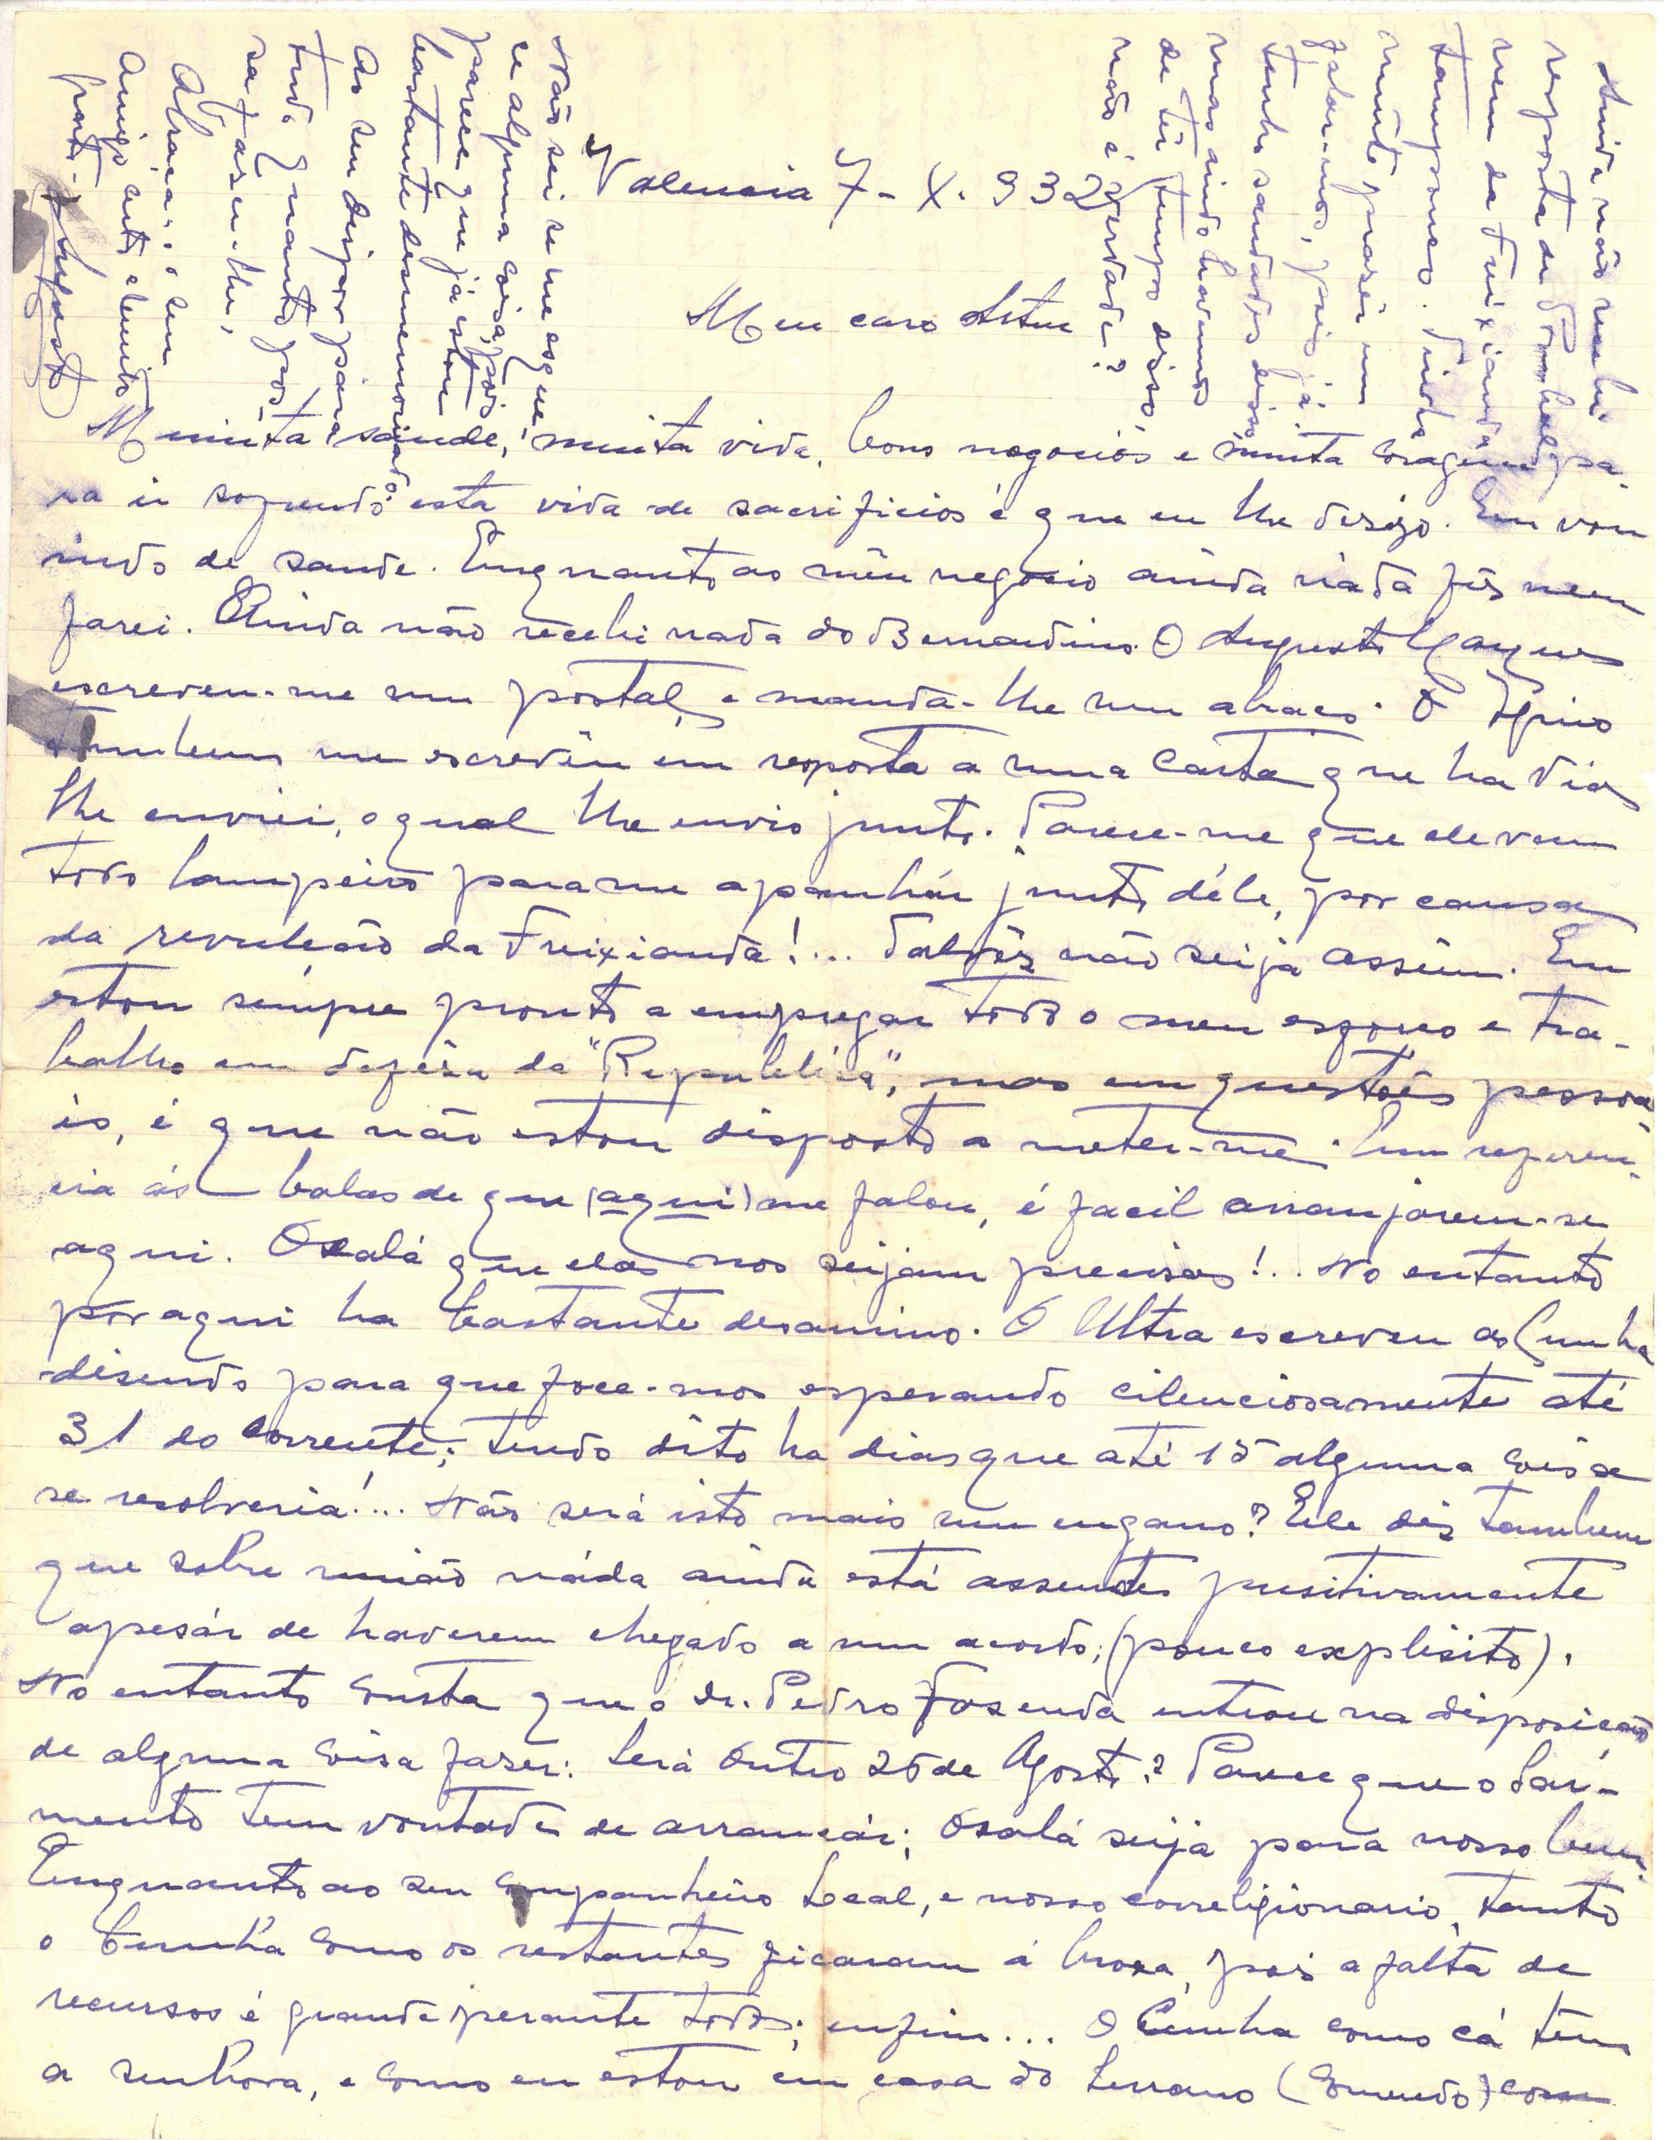 Valencia 7-X-932
Meu caro Artur
Muita saude, muita vida, bons nogociós e muita coragem pa-
ra ir sofrendo esta vida de sacrificiós é que eu lhe desejo. Eu vou
indo de saude. Enquanto ao mêu negocio ainda náda fís nem
farei. Ainda não recebi nada do Bernardino. O Augusto
escreveu-me um postal, e manda-lhe um abraço. O Igino
tambem me escrevêu em resposta a uma carta que ha dias
lhe enviei, o qual lhe envio junto. Parece-me que ele vem
todo lampeiro para me apanhár junto déle, por causa
da revulção da Freixianda!... Talvês não seija assim. Eu
estou sempre pronto a empregar todo o meu esforço e tra-
balho em defêsa da "Republica", mas em questoes pessoa
is, é que não estou disposto a meter-me. Em referen-
cia ás balas de que (aqui) me falou, é facil arranjarem-se
aqui. Oxalá que elas nos seijam precisas!.. No entanto
por aqui ha bastante desanimo. O Ultra escreveu ao Cunha
disendo para que foce-mos esperando cilenciosamente até
31 do corrente; tendo dito ha dias que até 15 alguma coisa
se resolveria!... Não será isto mais um engano? Ele dis tambem
que sobre união náda ainda está assente pusitivamente
apesár de haverem chegado a um acordo; (pouco explisito).
No entanto consta que o dr. Pedro Fazenda entrou na disposição
de alguma coisa faser: Será outro 26 de Agosto? Parece que o Sar-
mento tem vontade de arrancár; oxalá seija para nosso bem.
Enquanto ao seu companheiro Leal, e nosso correligionario, tanto
o Cunha como os restantes ficaram á broxa, pois a falta de
recursos é grande perante todos; enfim... O Cunha como cá tem
a senhora, e como eu estou em casa do Serrano (Comendo) com
Ainda não recebi
resposta de Pombal
nem da Freixianda
tampouco. Tinha
muito prasêr em
falar-mos, pois já
tenho saudades disso
mas ainda havemos
de têr tempo disso
não é verdade?
Não sei se me esque
ce alguma coisa, pois
parece que já estou
bastante desmemoriado.
Ao seu dispor para
tudo quanto pos
sa faser-lhe,
Abraça-o o seu
Amigo certo e
grato
Augusto